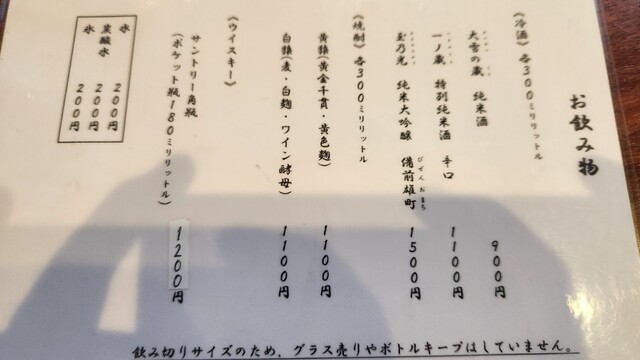 お飲み物
《冷酒》各300ミリリットル
大雪の蔵 純米酒 900円
一ノ蔵 特別純米酒 辛口 1100円
玉乃光 純米大吟醸 備前雄町 1500円
びぜんおまち
《焼酎》各300ミリリットル
黄猿(黄金千貫・黄色麹) 1100円
白猿(麦・白麹・ワイン酵母) 1100円
《ウイスキー》
サントリー角瓶
(ポケット瓶180ミリリットル) 1200円
氷 200円
炭酸水 200円
水 200円
飲み切りサイズのため、グラス売りやボトルキープはしていません。